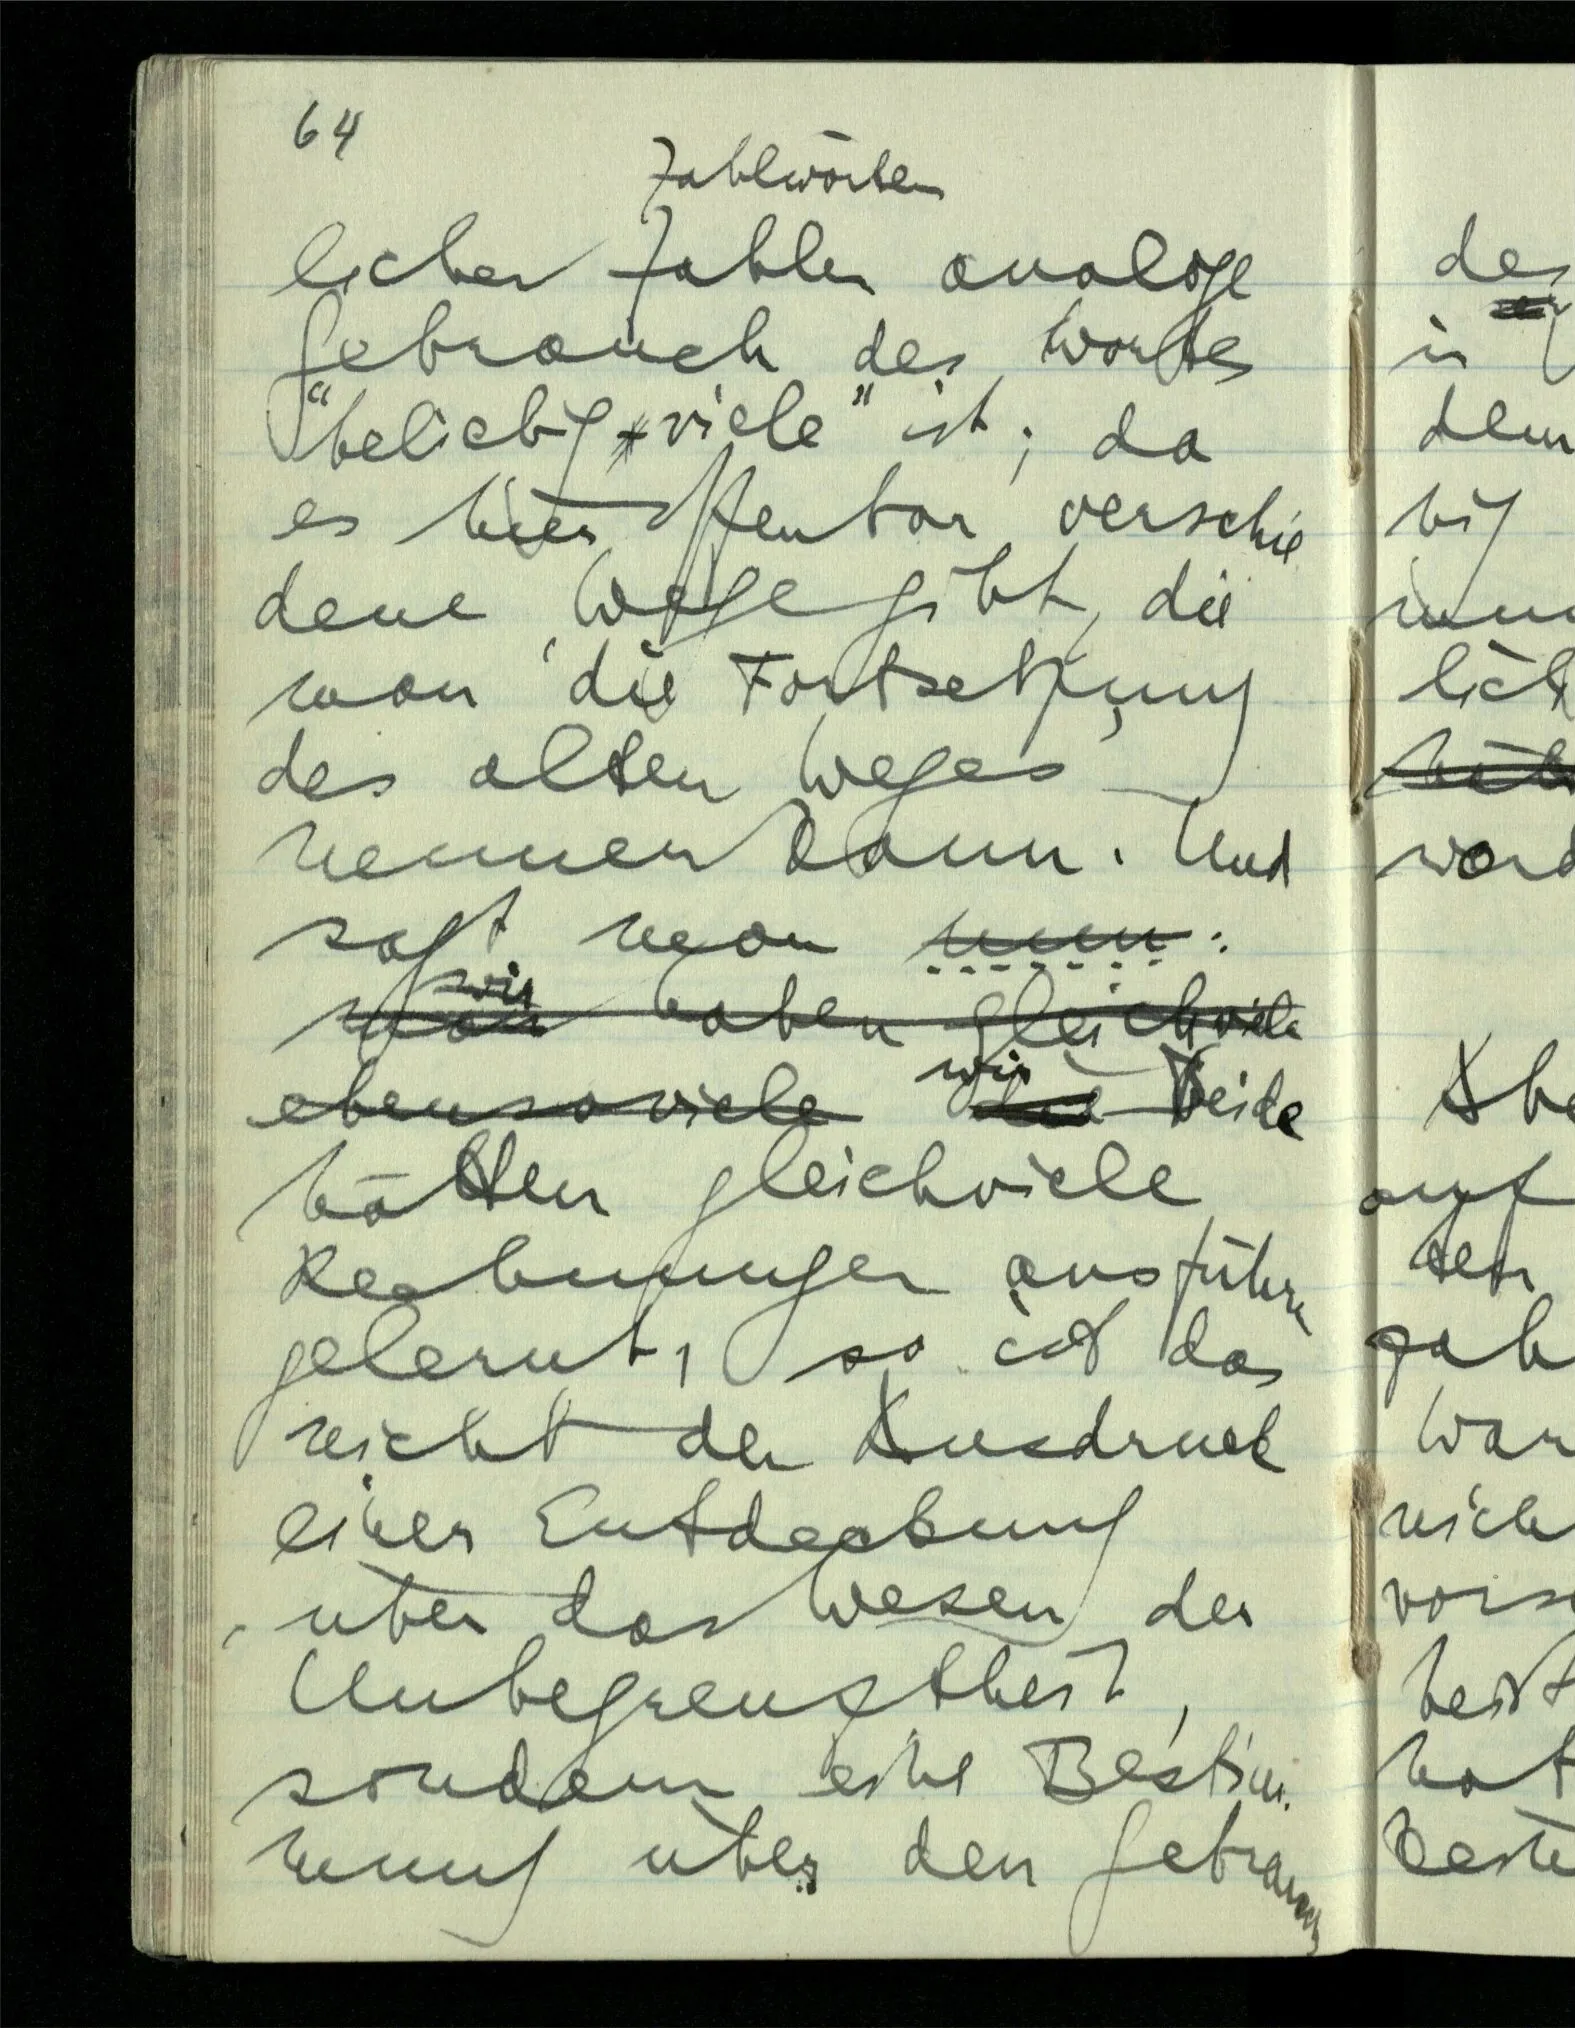 64
Zahlwörtern
licher Zahlen analoge
Gebrauch des Wortes
“beliebig viele” ist; da
es hier offenbar verschie
dene Wege gibt, die
man die Fortsetzung
des alten Weges
nennen kann. Und
sagt man nun:
wir
man haben gleichviele
ebensoviele wir die Beide
hätten gleichviele
Rechnungen ausführen
gelernt, so ist das
nicht der Ausdruck
einer Entdeckung
über das Wesen der
Unbegrenztheit,
sondern eine Bestim-
mung über den Gebrauch
des
in
dem
big
lich
auf
den